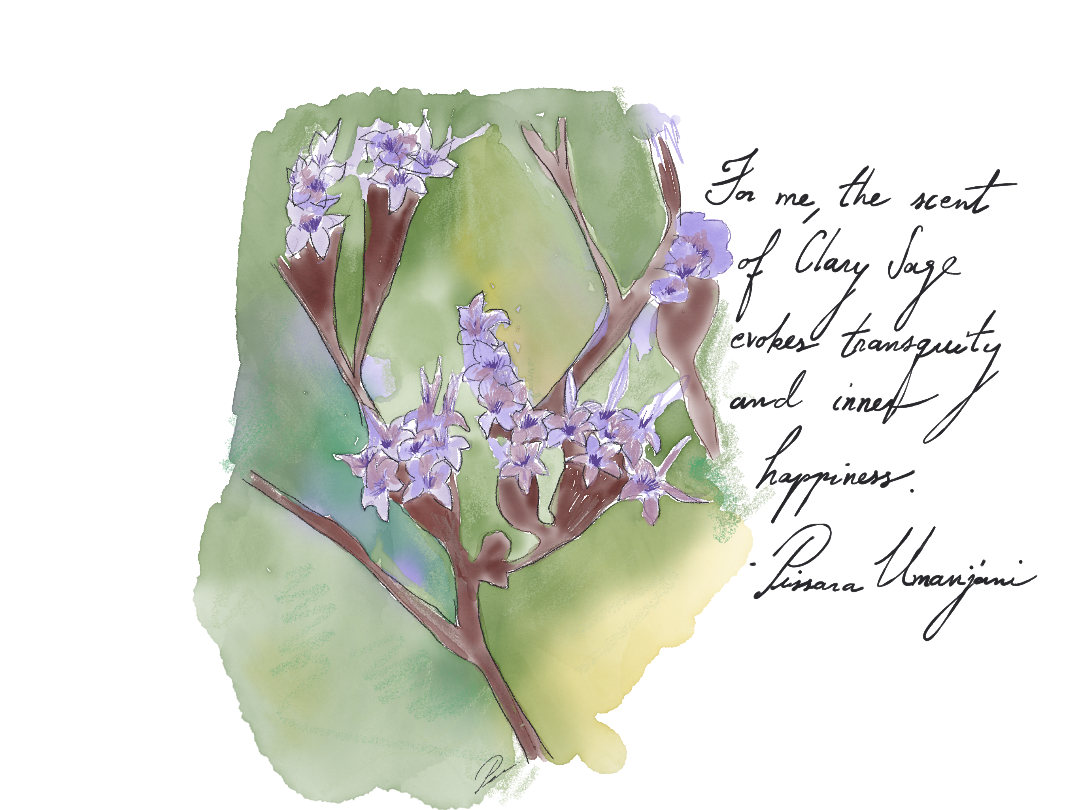 For me, the scent
of Clary Sage
evokes tranquity
and inner
happiness.
- Pissara Umavijani